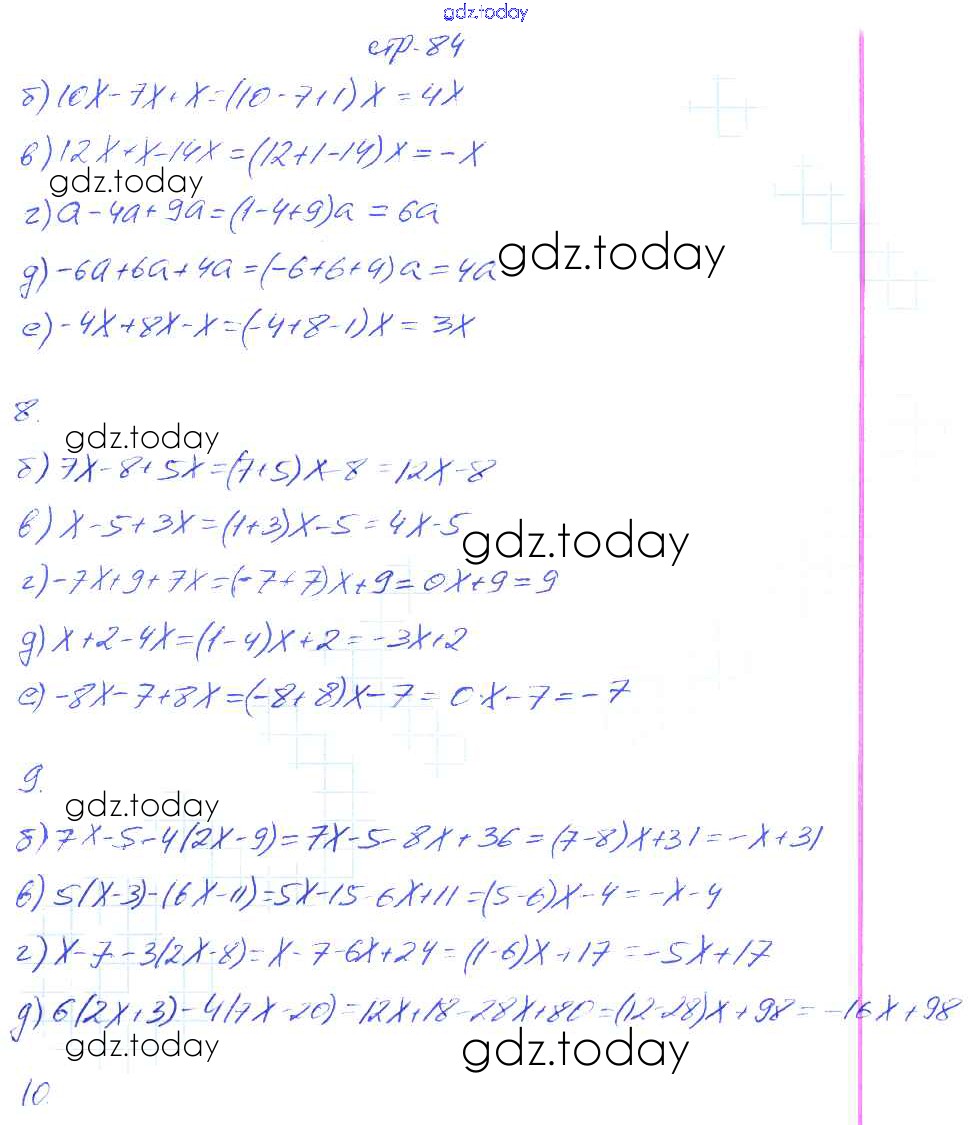 gdz.today
стр-84
б) 10x-7x+x=(10-7+1)x=4x
в) 12x+x-14x=(12+1-14)x=-x
gdz.today
г) a-4a+9a=(1-4+9)a=6a
д) -6a+6a+4a=(-6+6+4)a=4a
gdz.today
е) -4x+8x-x=(-4+8-1)x=3x
8.
gdz.today
б) 7x-8+5x=(7+5)x-8=12x-8
в) x-5+3x=(1+3)x-5=4x-5
gdz.today
г) -7x+9+7x=(-7+7)x+9=0x+9=9
д) x+2-4x=(1-4)x+2=-3x+2
е) -8x-7+8x=(-8+8)x-7=0·x-7=-7
9.
gdz.today
б) 7x-5-4(2x-9)=7x-5-8x+36=(7-8)x+31=-x+31
в) 5(x-3)-(6x-11)=5x-15-6x+11=(5-6)x-4=-x-4
г) x-7-3(2x-8)=x-7-6x+24=(1-6)x+17=-5x+17
д) 6(2x+3)-4(7x-20)=12x+18-28x+80=(12-28)x+98=-16x+98
gdz.today
gdz.today
10.